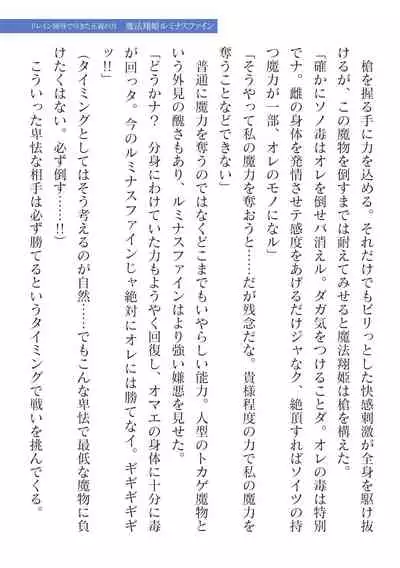 ドレイン研究で引きだ正義の力　魔法翔姫ルミナスファイン
　槍を握る手に力を込める。それだけでもビリっとした快感刺激が全身を駆け抜
けるが、この魔物を倒すまでは耐えてみせると魔法翔姫は槍を構えた。
「確かにソノ毒はオレを倒せバ消えル。ダガ気をつけることダ。オレの毒は特別
でナ。雌の身体を発情させテ感度をあげるだけジャなク、絶頂すればソイツの持
つ魔力が一部、オレのモノになル」
「そうやって私の魔力を奪おうと……だが残念だな。貴様程度の力で私の魔力を
奪うことなどできない」
　普通に魔力を奪うのではなくどこまでもいやらしい能力。人型のトカゲ魔物と
いう外見の醜さもあり、ルミナスファインはより強い嫌悪を見せた。
「どうかナ？　分身にわけていた力もようやく回復し、オマエの身体に十分に毒
が回っタ。今のルミナスファインじゃ絶対にオレには勝てなイ。ギギギギギ
ッ!!」
（タイミングとしてはそう考えるのが自然……でもこんな卑怯で最低な魔物に負
けたくはない。必ず倒す……!!）
　こういった卑怯な相手は必ず勝てるというタイミングで戦いを挑んでくる。